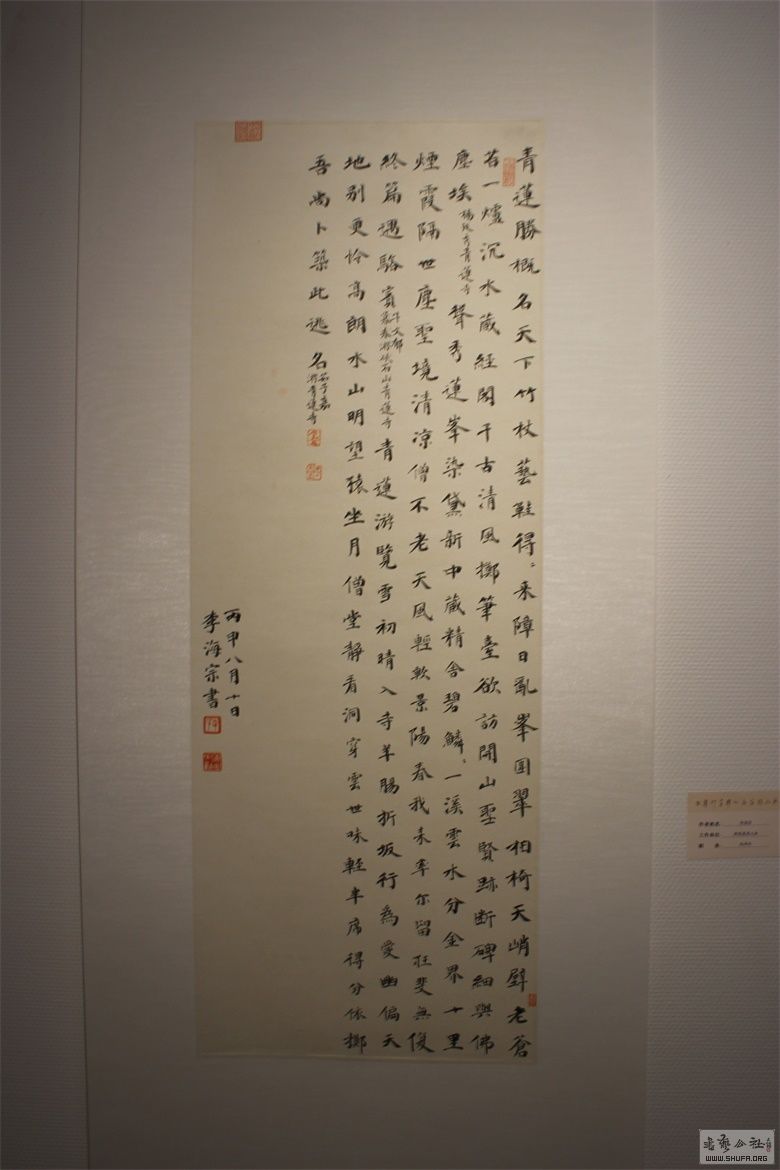 青蓮勝概名天下竹杖藝鞋得〻来障日亂峯囬翠相椅天峭壁老蒼
苔一爐沉水藏經閣千古清風擲筆臺欲訪開山聖賢跡断碑細與佛
塵埃楊庭秀青蓮寺聳秀蓮峯染黛新中藏精舍碧鱗〻一溪雲水分金界十里
煙霞隔世塵聖境清凉僧不老天風輕軟景陽春我来率尔留狂斐無復
終篇遇駱賓牛文郁暮春游硤石山青蓮寺青蓮游覽雪初晴入寺羊腸折坂行為愛幽偏天
地别更怜高朗水山明望猿坐月僧堂静看洞穿雲世味輕半席得分依擲
吾尚卜築此逃名茹子嘉游青蓮寺
丙申八月十日
李海宗書
WWW.SHUFA.ORG